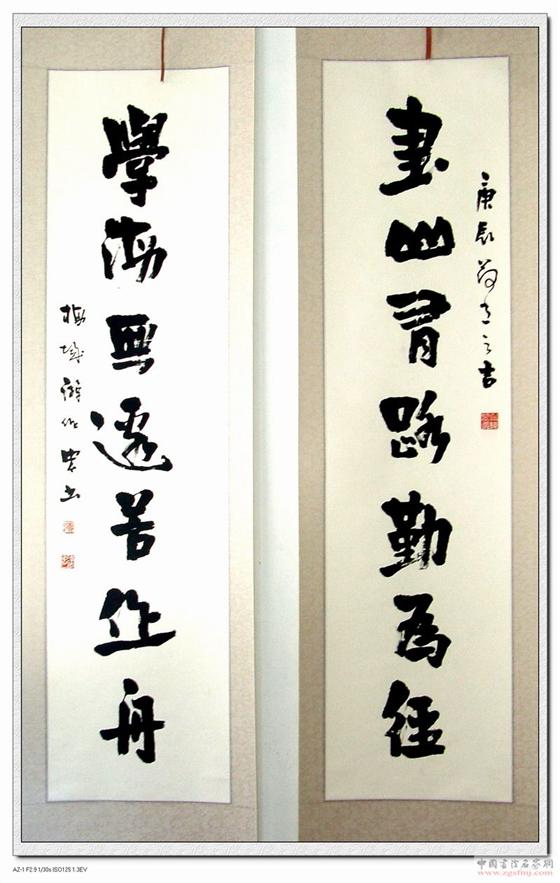 庚辰 之吉
書山有路勤為徑
學海無邊苦作舟
AZ-1 F2.9 1/30s ISO125 1.3EV
中國書法名家網
www.zgsfmj.com